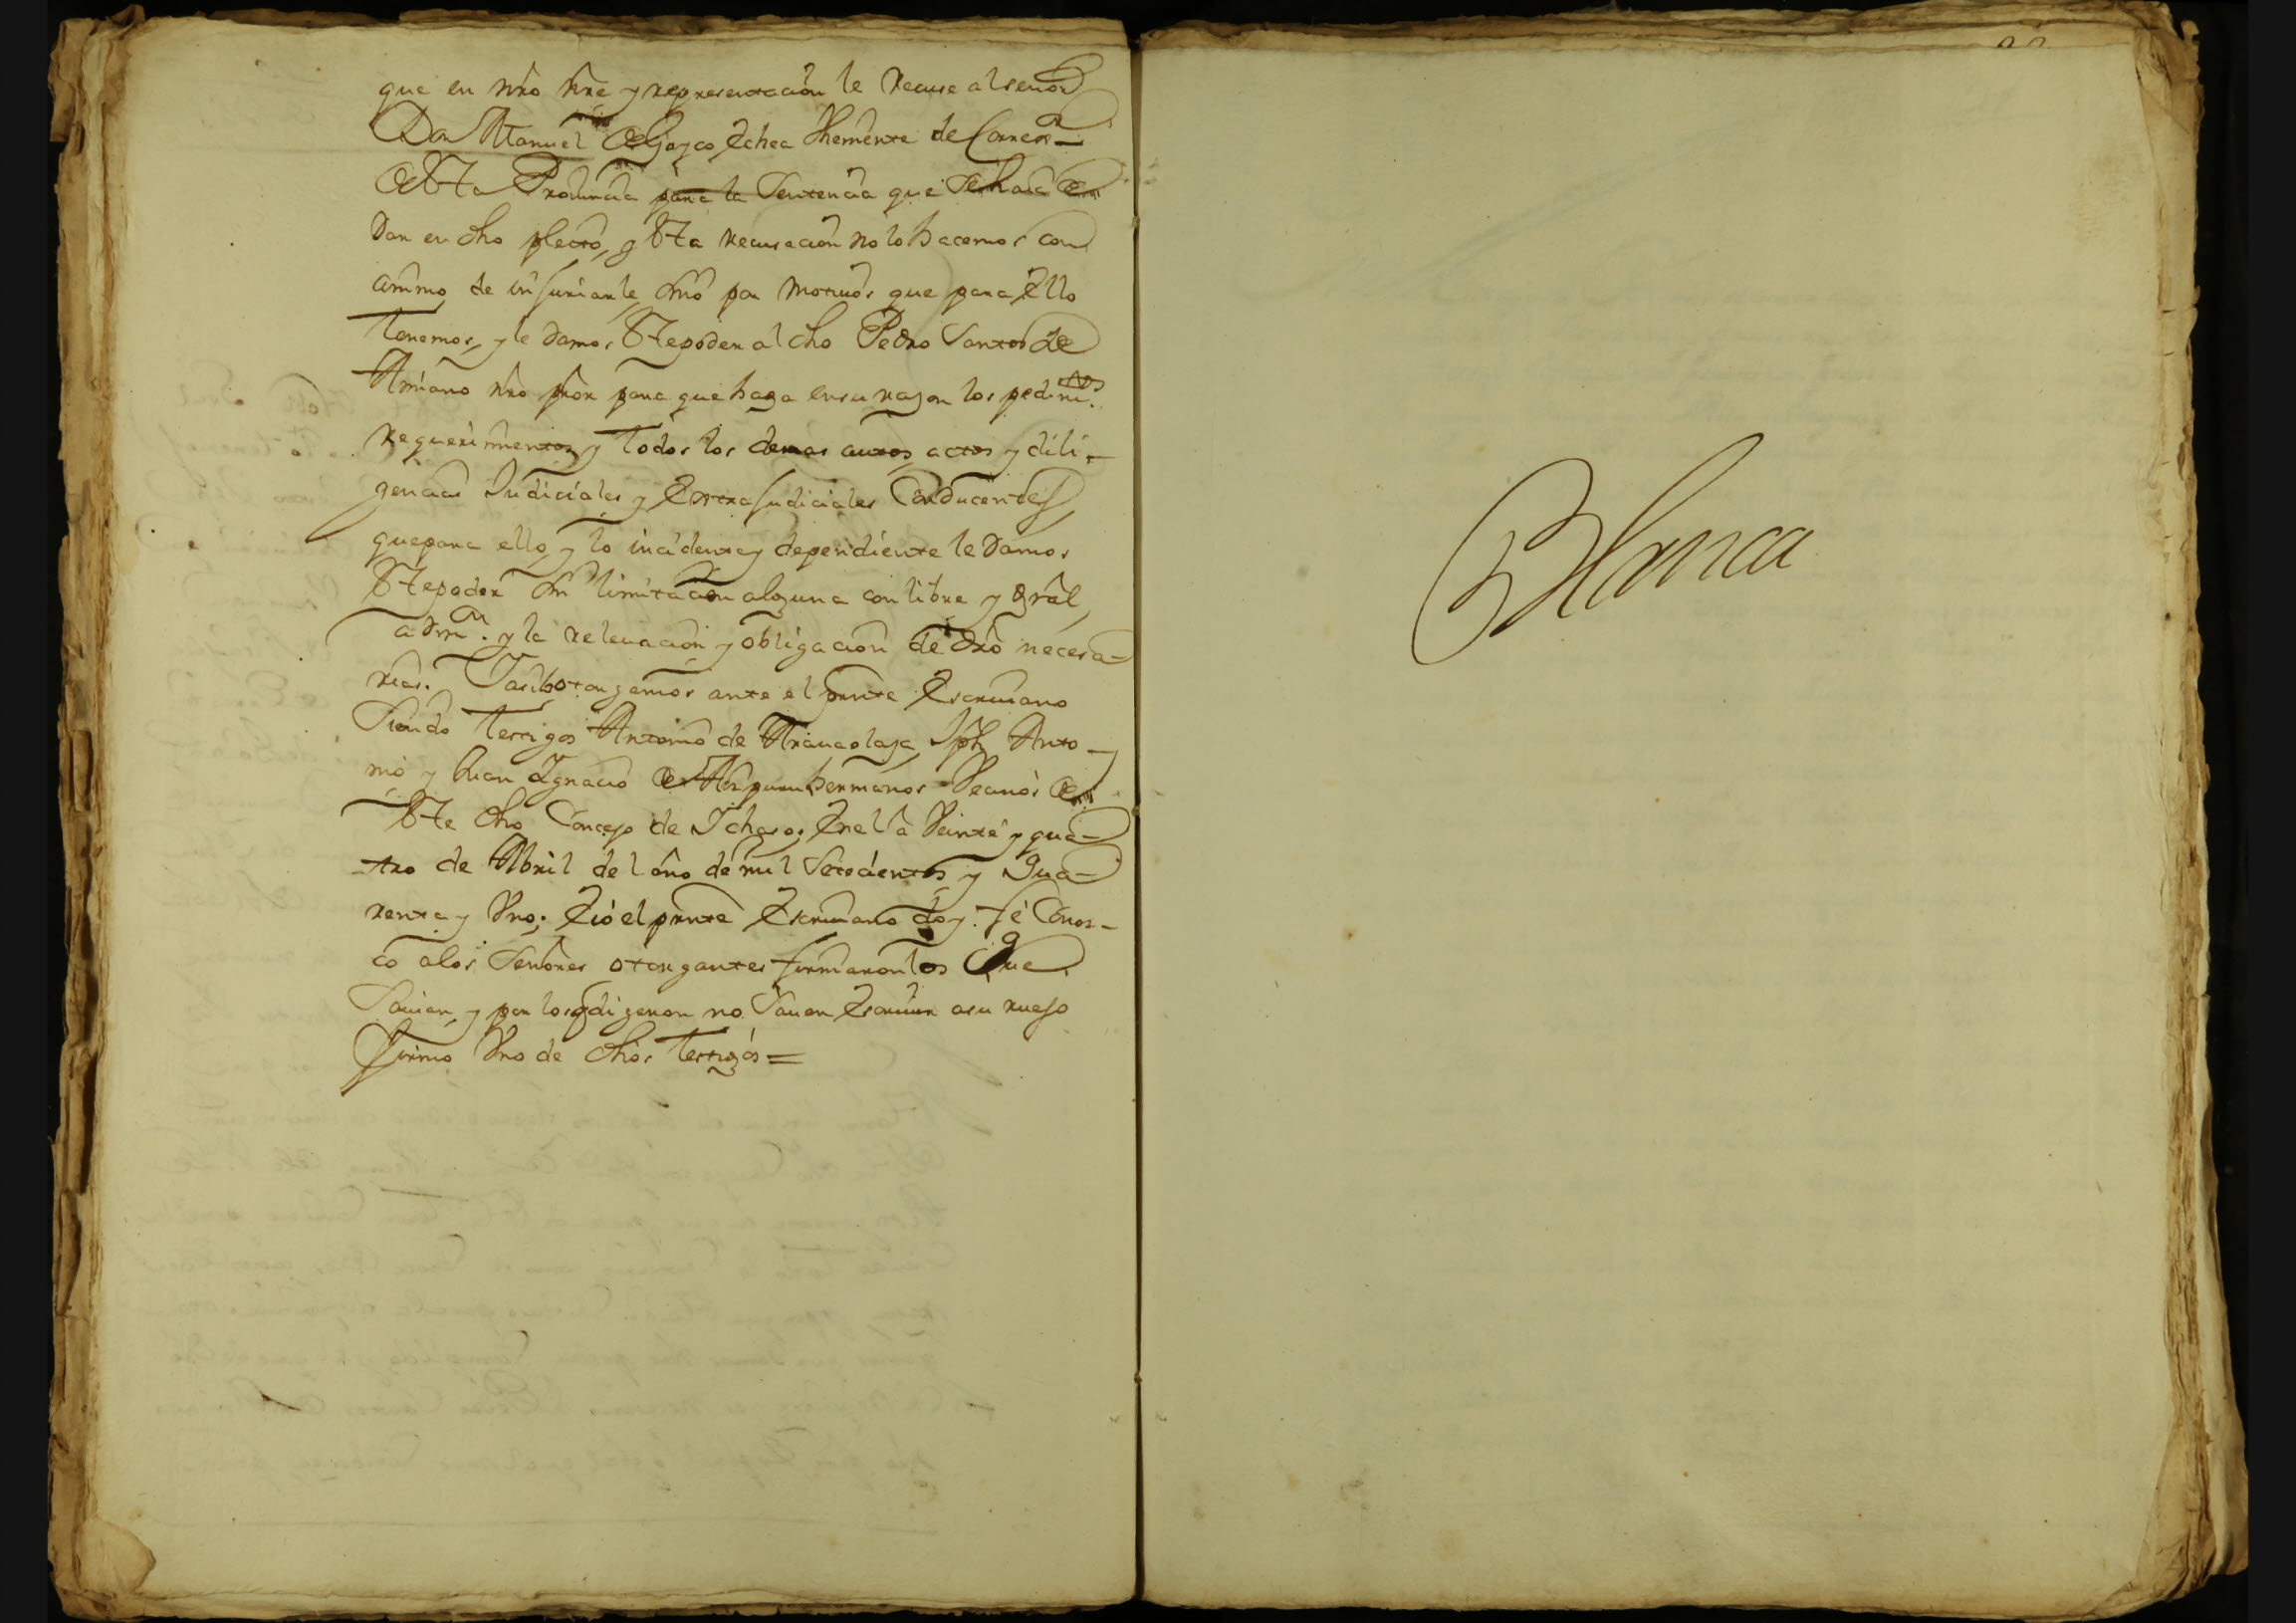 que en nrō nr̄e y representacion le Recuse al señor
Don Manuel de Goycoechea Theniente de Corrēxr
de Sta Provincia para la Sentencia que se hara de
dar en dho pleito, y Sta recusacion no lo hacemos con
animo de injuriarle, sino por motivos que para Ello
tenemos, y le damos Ste poder al dho Pedro Santos de
Amiano nrō prōr para que haga en su razon los pedimtos
requerimientos y todos los demas autos, actos y dili-
gencias Judiciales y Extrajudiciales Conducentes,
que para ello, y lo incidente y dependiente le damos
Ste poder sin limitacion alguna con libre y grāl
admn. y la relevacion y obligacion de drō necesa-
rias. Y asi lo otorgamos ante el prnte Escriuano
Siendo testigos Antonio de Jph Anto-
nio y Juan Ignacio de hermanos Vecinos de
Ste dho Concejo de Ichaso; En el a Veinte y qua-
tro de Abril del año de mil Setecientos y Qua-
renta y Vno; E io el prnte Escriuano doy fe Conoz-
co a los Señores otorgantes firmaron los Que
Sauian, y por los q dijeron no Sauer Escriuir a su ruego
firmo Vno de dhos testigos =
Blanca